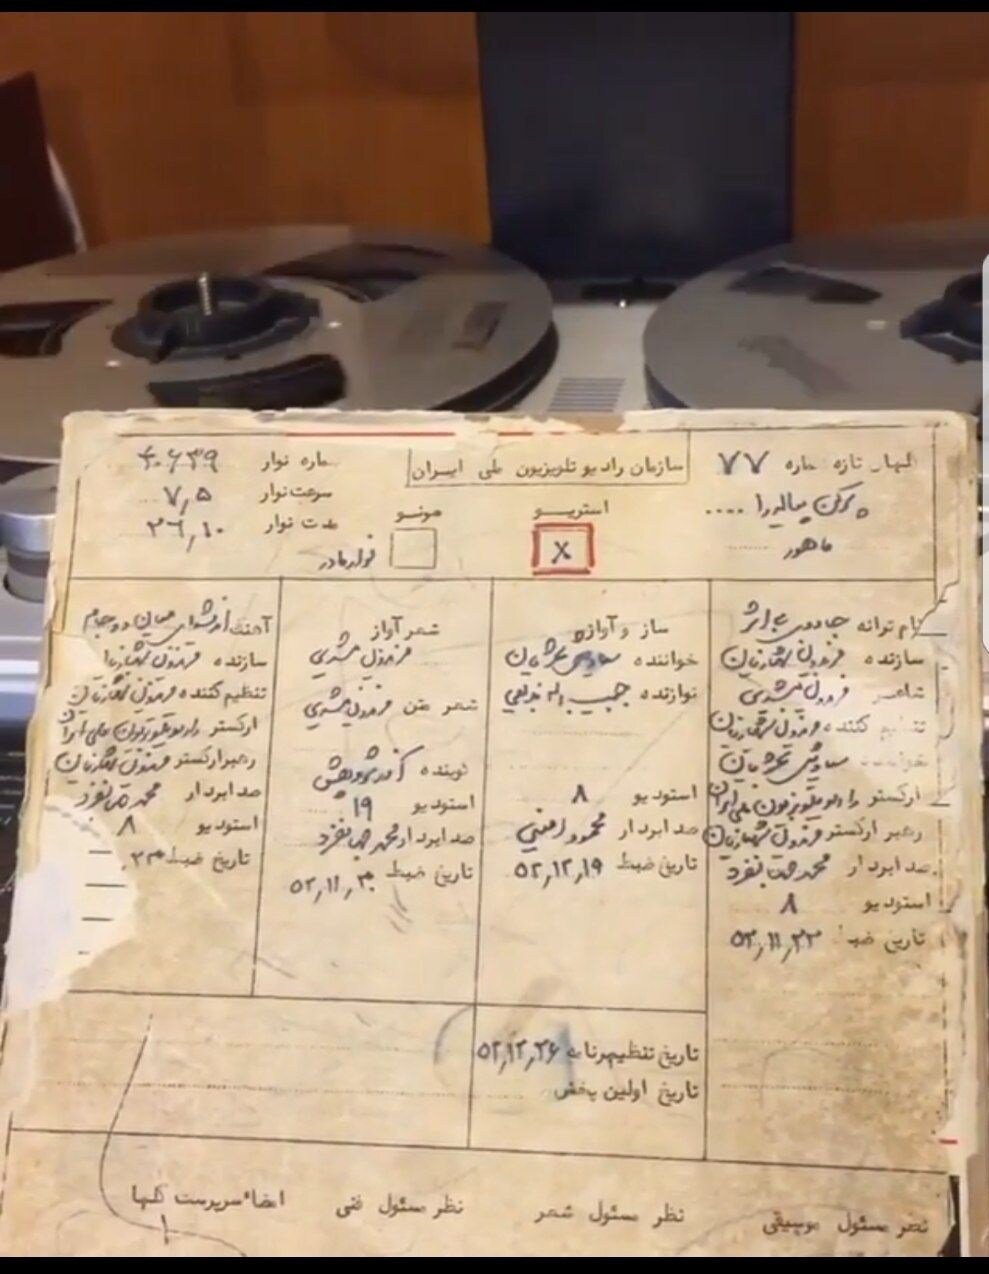 گلهای تازه شماره ۷۷
پر کن پیاله را ....
ماهور
سازمان رادیو تلویزیون ملی ایران
استریو
X
مونو
شماره نوار ۴۰۶۳۹
سرعت نوار ۷٫۵
مدت نوار ۳۶٫۱۰
نوار مادر
نام ترانه جادوی بی اثر
سازنده فریدون شهبازیان
شاعر فریدون مشیری
تنظیم کننده فریدون شهبازیان
خواننده سیاوش شجریان
ارکستر رادیو تلویزیون ملی ایران
رهبر ارکستر فریدون شهبازیان
صدابردار محمد
استودیو ۸
تاریخ ضبط ۵۲٫۱۱٫۲۳
ساز و آواز
خواننده سیاوش شجریان
نوازنده حبیب اله بدیعی
استودیو ۸
صدابردار محمود امینی
تاریخ ضبط ۵۲٫۱۲٫۱۹
شعر آواز
فریدون مشیری
شعر متن فریدون مشیری
گوینده آذر پژوهش
استودیو ۱۹
صدابردار محمد
تاریخ ضبط ۵۲٫۱۱٫۳۰
آهنگ میان دو جام
سازنده فریدون شهبازیان
تنظیم کننده فریدون شهبازیان
ارکستر رادیو تلویزیون ملی ایران
رهبر ارکستر فریدون شهبازیان
صدابردار محمد
استودیو ۸
تاریخ ضبط
تاریخ تنظیم برنامه ۵۲٫۱۲٫۲۶
تاریخ اولین پخش
نظر مسئول موسیقی
نظر مسئول شعر
نظر مسئول فنی
امضاء سرپرست گلها